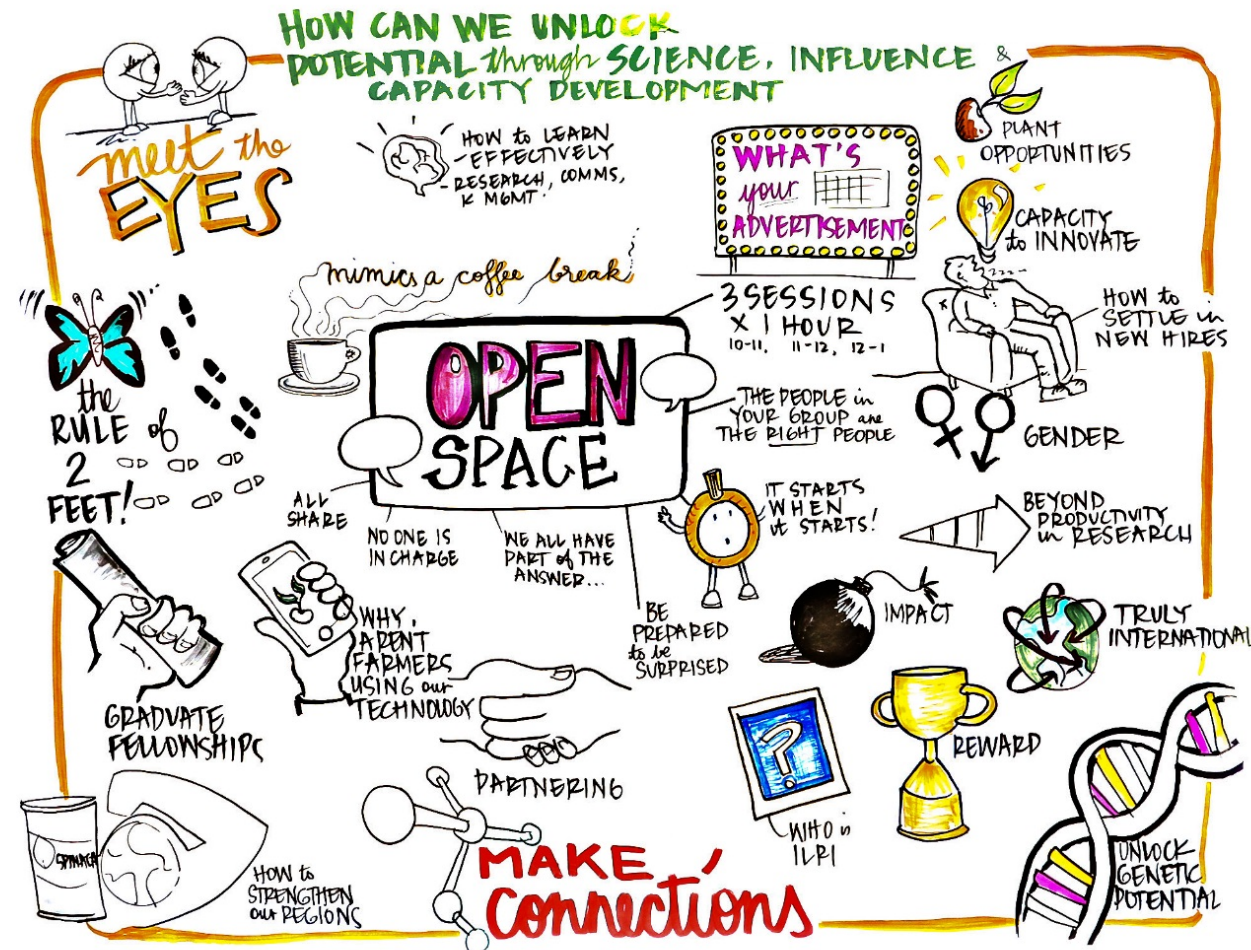 HOW CAN WE UNLOCK
POTENTIAL through SCIENCE, INFLUENCE &
CAPACITY DEVELOPMENT
meet the
EYES
HOW to LEARN
- EFFECTIVELY
- RESEARCH, COMMS,
K MGMT.
WHAT'S
your
ADVERTISEMENT
PLANT
OPPORTUNITIES
CAPACITY
to INNOVATE
HOW to
SETTLE in
NEW HIRES
mimics a coffee break
OPEN
SPACE
3 SESSIONS
X 1 HOUR
10-11, 11-12, 12-1
THE PEOPLE in
YOUR GROUP are
THE RIGHT PEOPLE
GENDER
the
RULE of
2
FEET!
ALL
SHARE
NO ONE IS
IN CHARGE
WE ALL HAVE
PART of THE
ANSWER...
BE
PREPARED
to be
SURPRISED
IT STARTS
WHEN
it STARTS!
BEYOND
PRODUCTIVITY
in RESEARCH
IMPACT
TRULY
INTERNATIONAL
GRADUATE
FELLOWSHIPS
WHY
ARENT
FARMERS
USING our
TECHNOLOGY
PARTNERING
?
WHO is
ILRI
REWARD
SPINACH
HOW to
STRENGTHEN
our REGIONS
MAKE
Connections
UNLOCK
GENETIC
POTENTIAL